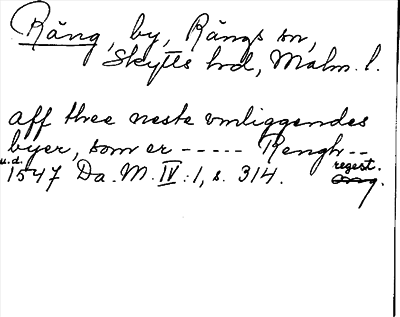 Räng, by, Rängs sn,
Skytts hd, Malm. l.
aff thee neste vmliggendes
byer, som er ----- Rengh --
u.d. regest.
1547 Da. M. IV:1, s. 314.